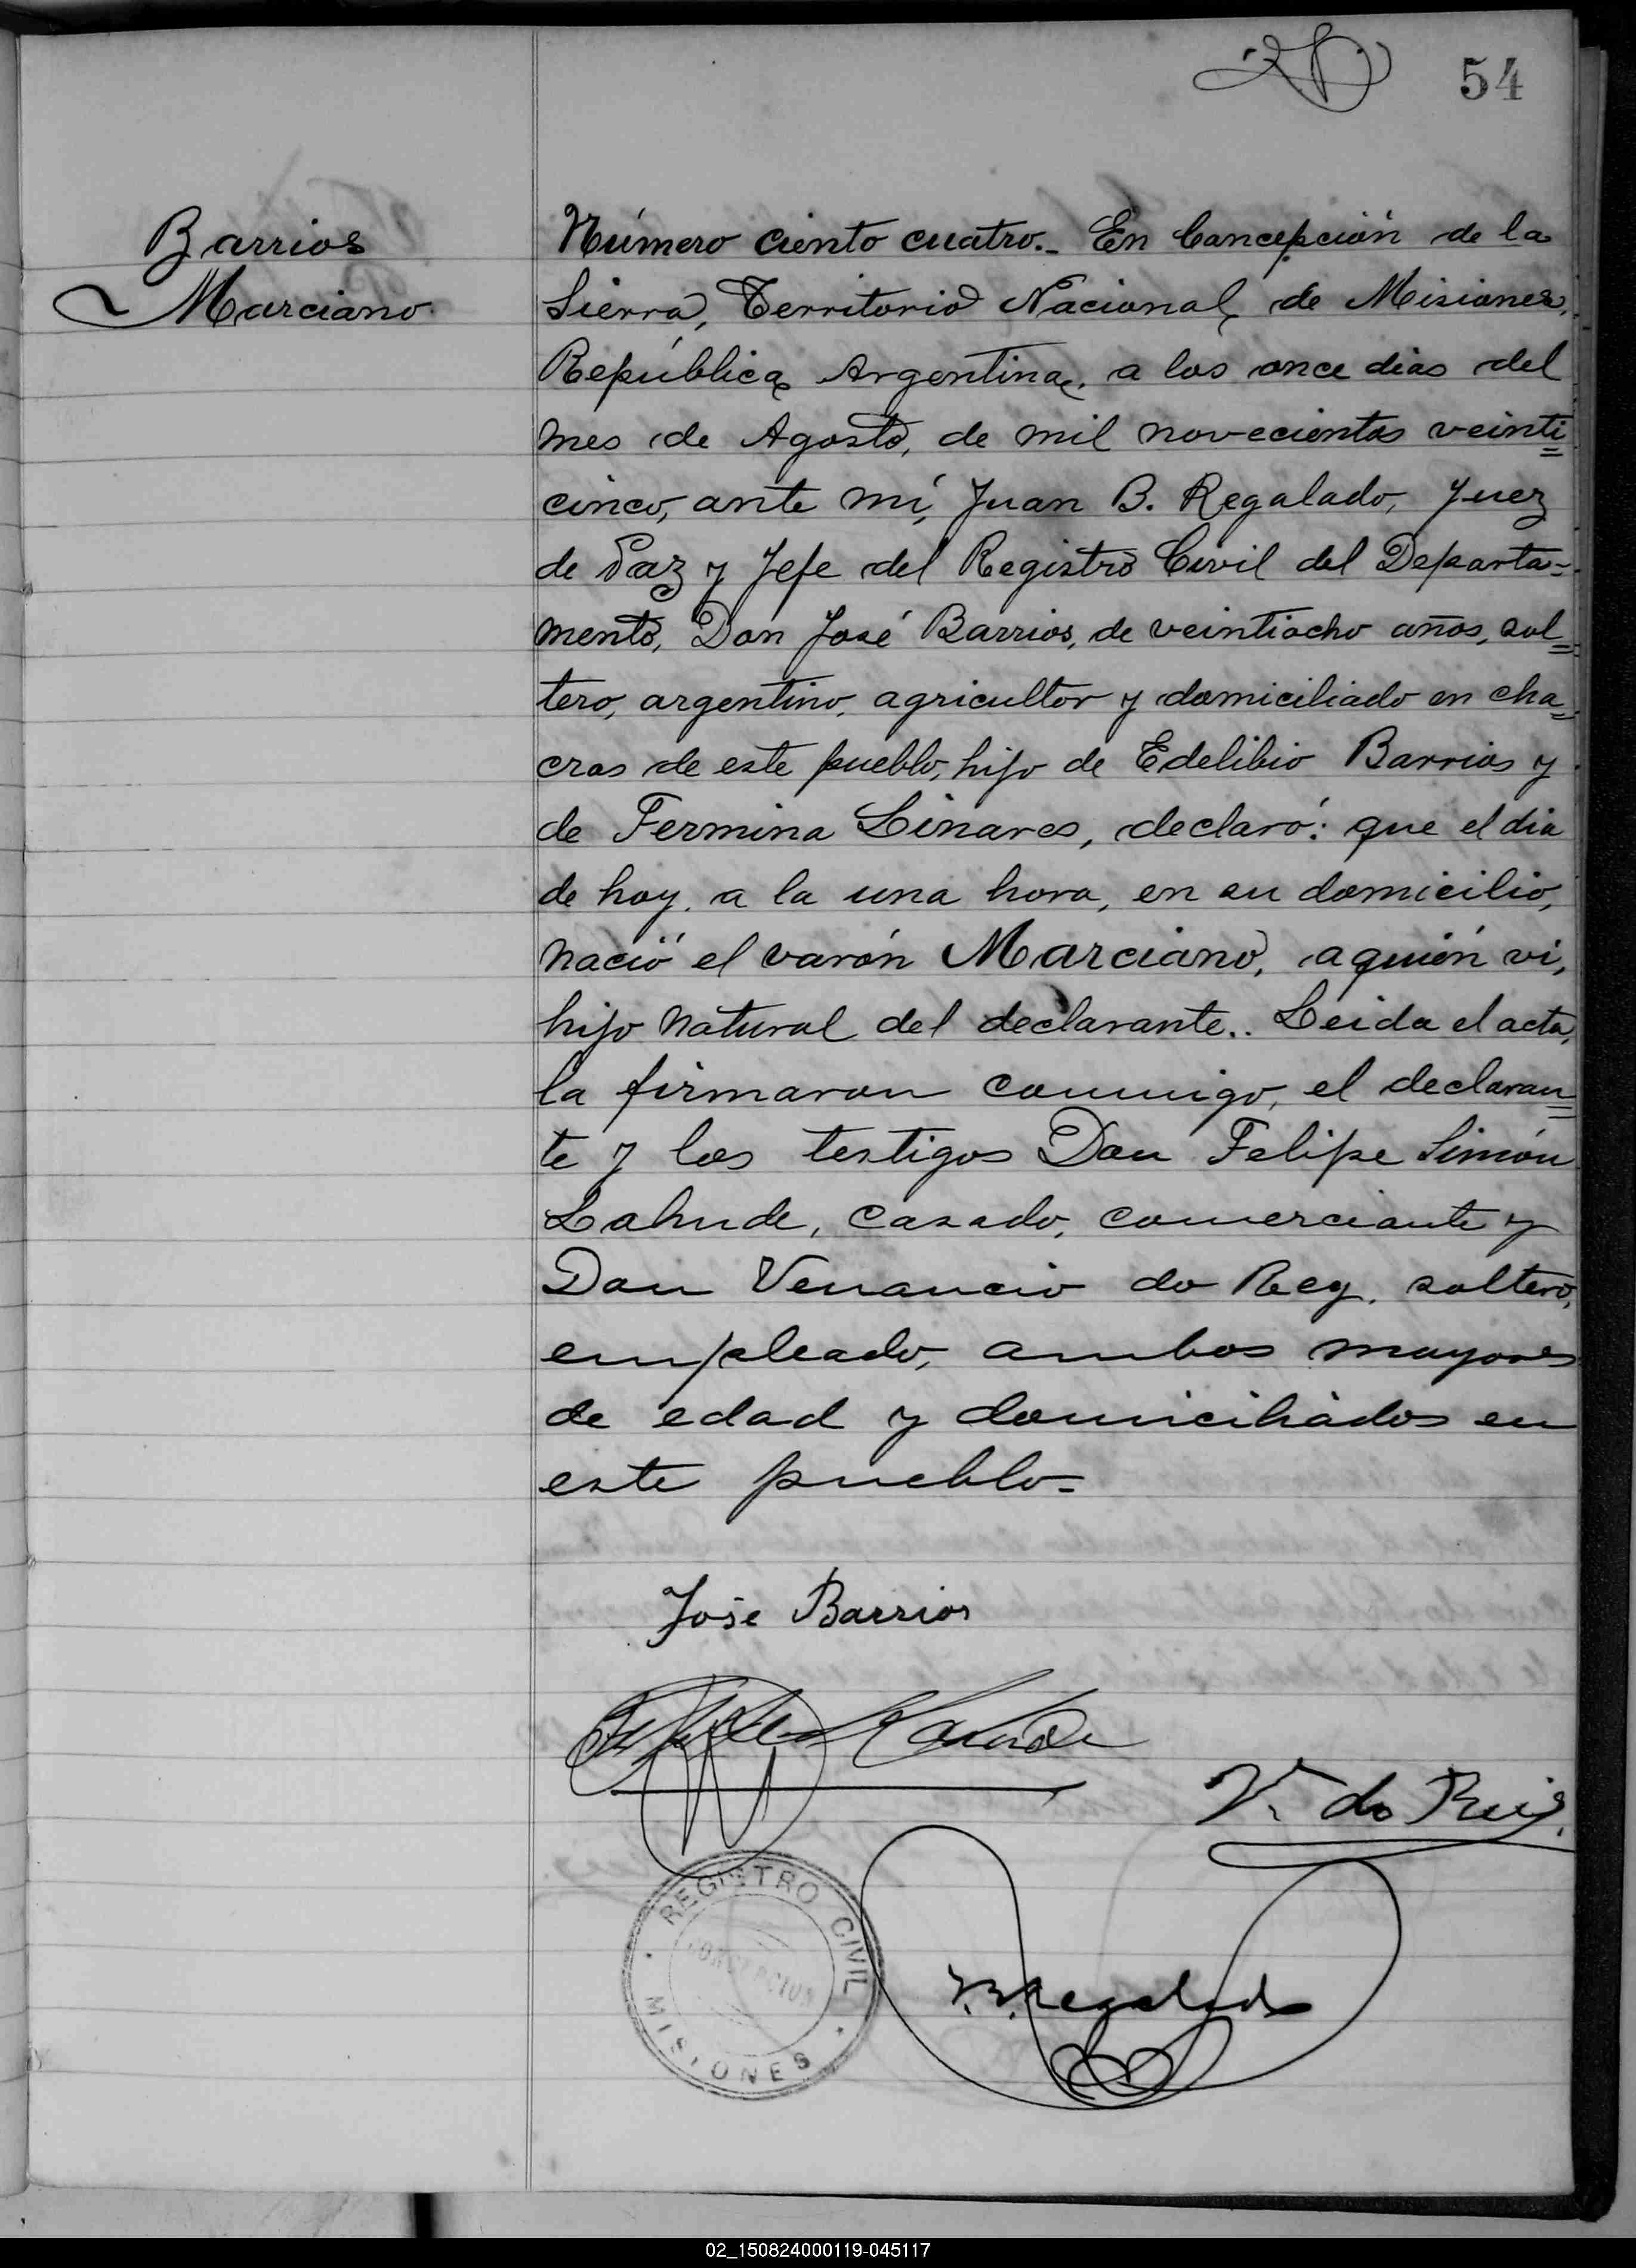 54
Barrios
Marciano.
Número ciento cuatro.- En Concepción de la
Sierra, Territorio Nacional de Misiones,
República Argentina, a los once dias del
mes de Agosto, de mil novecientos veinti=
cinco, ante mí, Juan B. Regalado, Juez
de Paz y Jefe del Registro Civil del Departa=
mento, Don José Barrios, de veintiocho años, sol=
tero, argentino, agricultor y domiciliado en cha=
cras de este pueblo, hijo de Edelibio Barrios y
de Fermina Linares, declaró: que el dia
de hoy, a la una hora, en su domicilio,
nació el varón Marciano, a quién vi,
hijo natural del declarante.. Leida el acta,
la firmaron conmigo, el declaran=
te y los testigos Don Felipe Simón
Lahude, casado, comerciante y
Don Venancio do Rey, soltero,
empleado, ambos mayores
de edad y domiciliados en
este pueblo-
José Barrios
V. do Rey.
REGISTRO CIVIL
CONCEPCION
MISIONES
J.B. Regalado
02_150824000119-045117